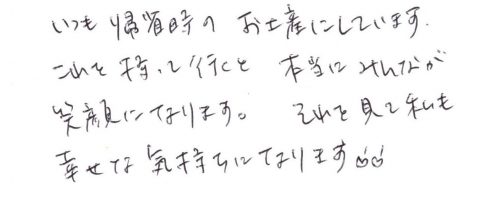 いつも帰省時のお土産にしています.
これを持って行くと 本当にみんなが
笑顔になります。 それを見て私も
幸せな気持ちになります